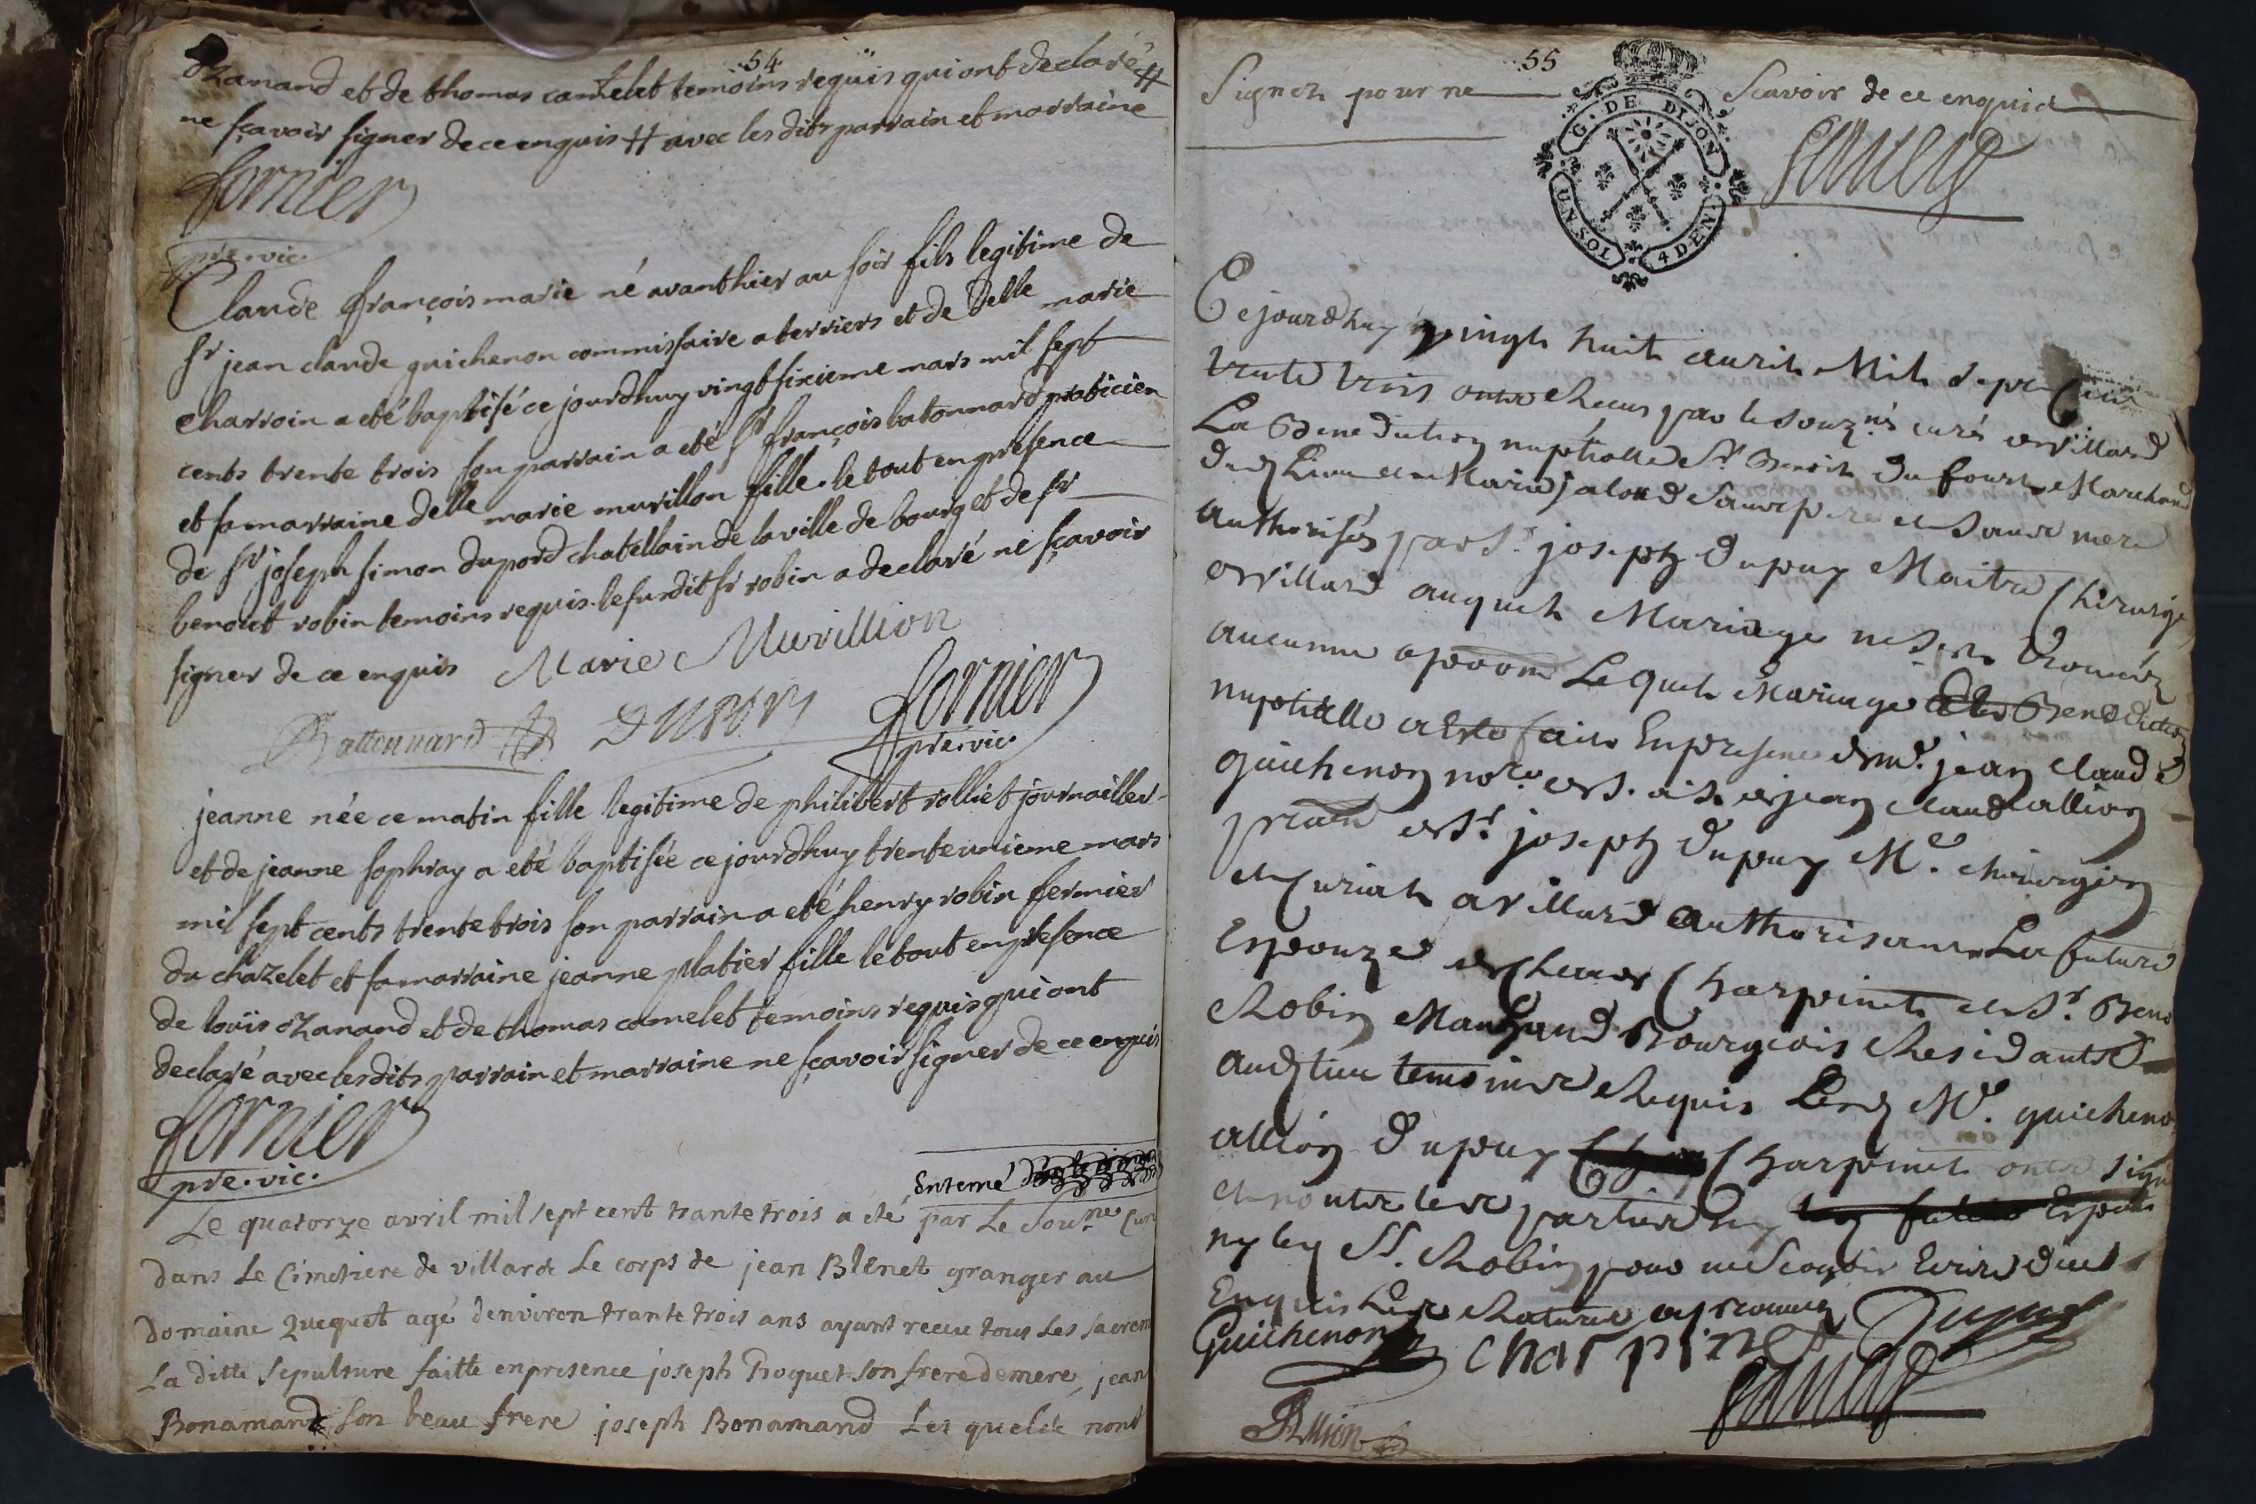 54
ozanand et de thomas camelet temoins requis qui ont declaré #
ne sçavoir signer de ce enquis # avec lesdits parrain et marraine
fornier
pre. vic.
Claude françois marie né avanthier au soir fils legitime de
sr jean claude guichenon commissaire a terriers et de delle marie
charroin a eté baptisé ce jourdhuy vingt sixieme mars mil sept
cents trente trois son parrain a eté sr françois batonnard praticien
et sa marraine delle marie muvillon fille. le tout en presence
de sr joseph simon duport chatellain de la ville de bourg et de sr
benoit robin temoins requis. le susdit sr robin a declaré ne sçavoir
signer de ce enquis Marie Muvillion
Battonnard DUPORT fornier
pre. vic.
jeanne née ce matin fille legitime de philibert rolliet journailler
et de jeanne sophray a eté baptisée ce jourdhuy trente unieme mars
mil sept cents trente trois son parrain a eté henry robin fermier
du chazelet et sa marraine jeanne platier fille le tout en presence
de loüis ozanand et de thomas camelet temoins requis qui ont
declaré avec lesdits parrain et marraine ne sçavoir signer de ce enquis
fornier
pre. vic.
Enterré
Le quatorze avril mil sept cent trante trois a été par Le Sou.né Curé
dans Le Cimetiere de villars Le corps de jean Blenet granger au
domaine Quequet agé denviron trante trois ans ayant receu tous Les sacrem
La ditte sepulture faitte en presence joseph Proquet son frere de mere, jean
Bonamand son beau frere joseph Bonamand Les quels nont
55
Signer pour ne Scavoir de ce enquis
G. DE DIJON
UN SOL 4 DEN.
Cejourdhuy vingt huit avril Mil sept Cent
trente trois ont Receus par le souz.né curé de villard
La Benediction nuptialle Sr Benoit Dufour Marchand
dud Lieu et Marie jaloud Sans pere et Sans mere
authorisée par Sr joseph Dupuy Maitre Chirurgien
de villard auquel Mariage ne s'est trouvé
aucunne Lequel Mariage Benediction
nuptialle a esté faite En presence de Me jean claude
guichenon no.re de jean claude allion
de Sr joseph Dupuy Me. chirurgien
et Curial a villard authorisant La future
Espouze de Charpinet et Sr. Beno
Robin Marchand Bourgeois Residants
aud lieu temoins Requis Led Me. guicheno
allion Dupuy Charpinet ont signé
et non les parties ny
ny led Sr. Robin pour ne Scavoir Ecrire de ce
Enquis Les Ratures approuvées
Guichenon charpinet Dupuy
Allion